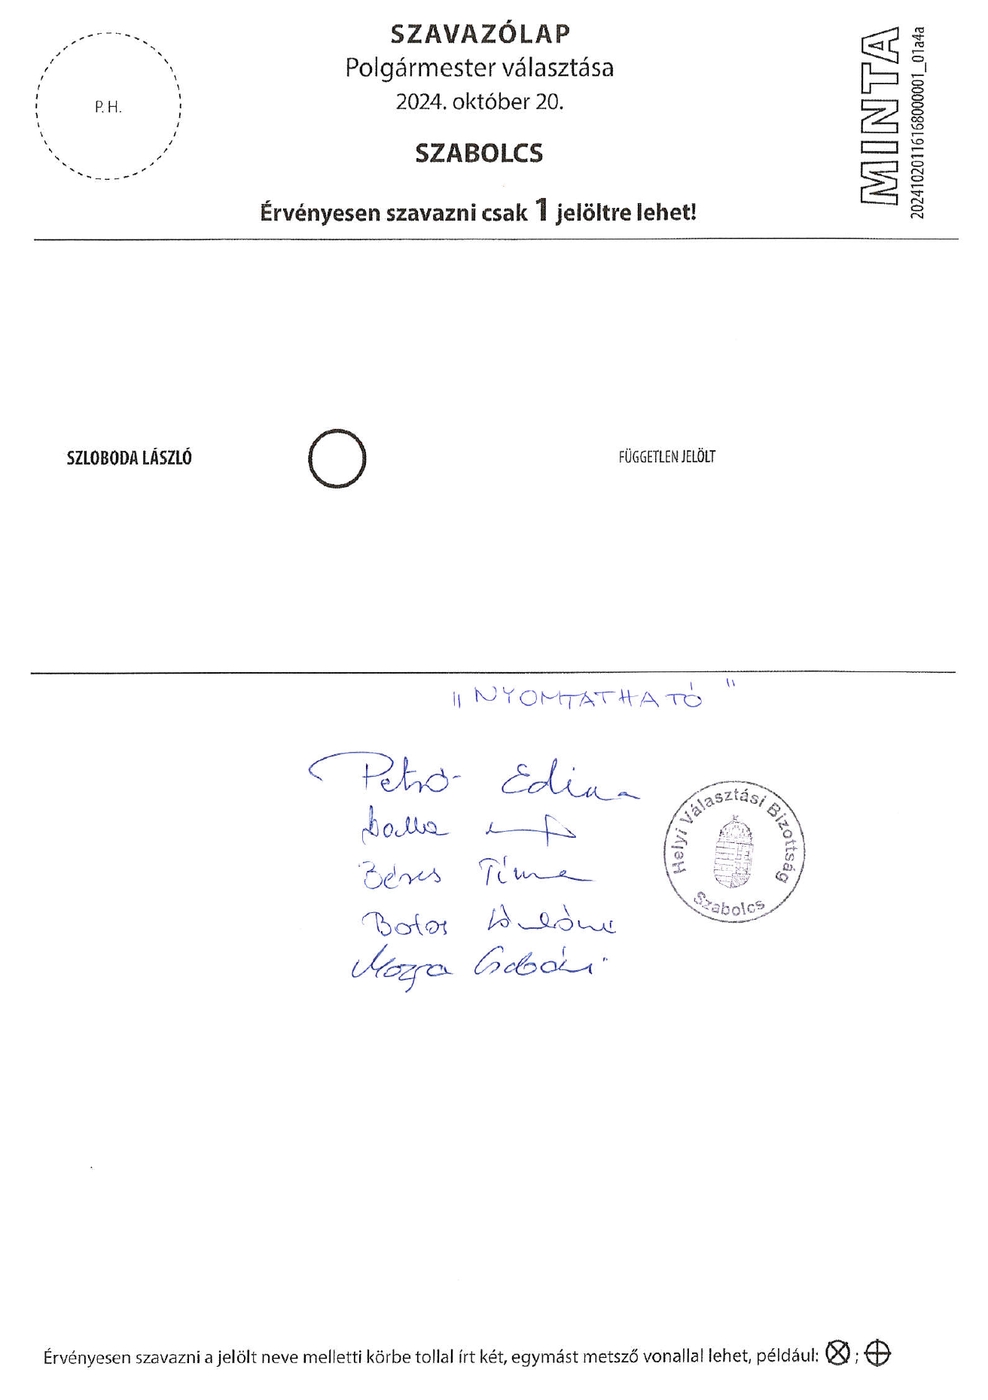 SZAVAZÓLAP
Polgármester választása
2024. október 20.
SZABOLCS
Érvényesen szavazni csak 1 jelöltre lehet!
P. H.
MINTA
2024102011616800001_01a4a
SZLOBODA LÁSZLÓ
FÜGGETLEN JELÖLT
"NYOMTATHATÓ"
Pető Edina
Balla
Béres Tímea
Botos
Mozga
Helyi Választási Bizottság
Szabolcs
Érvényesen szavazni a jelölt neve melletti körbe tollal írt két, egymást metsző vonallal lehet, például: ⊗ ; ⊕